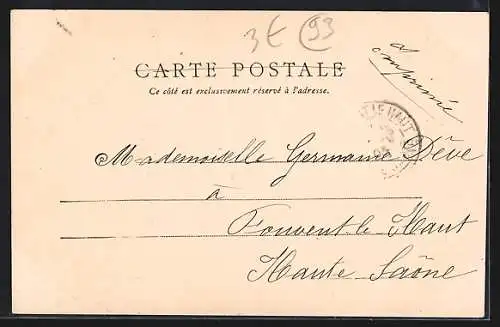 3€ 93
CARTE POSTALE
Ce côté est exclusivement réservé à l'adresse.
imprimé
Mademoiselle Germaine Dêve
à
Fouvent-le-Haut
Haute-Saône